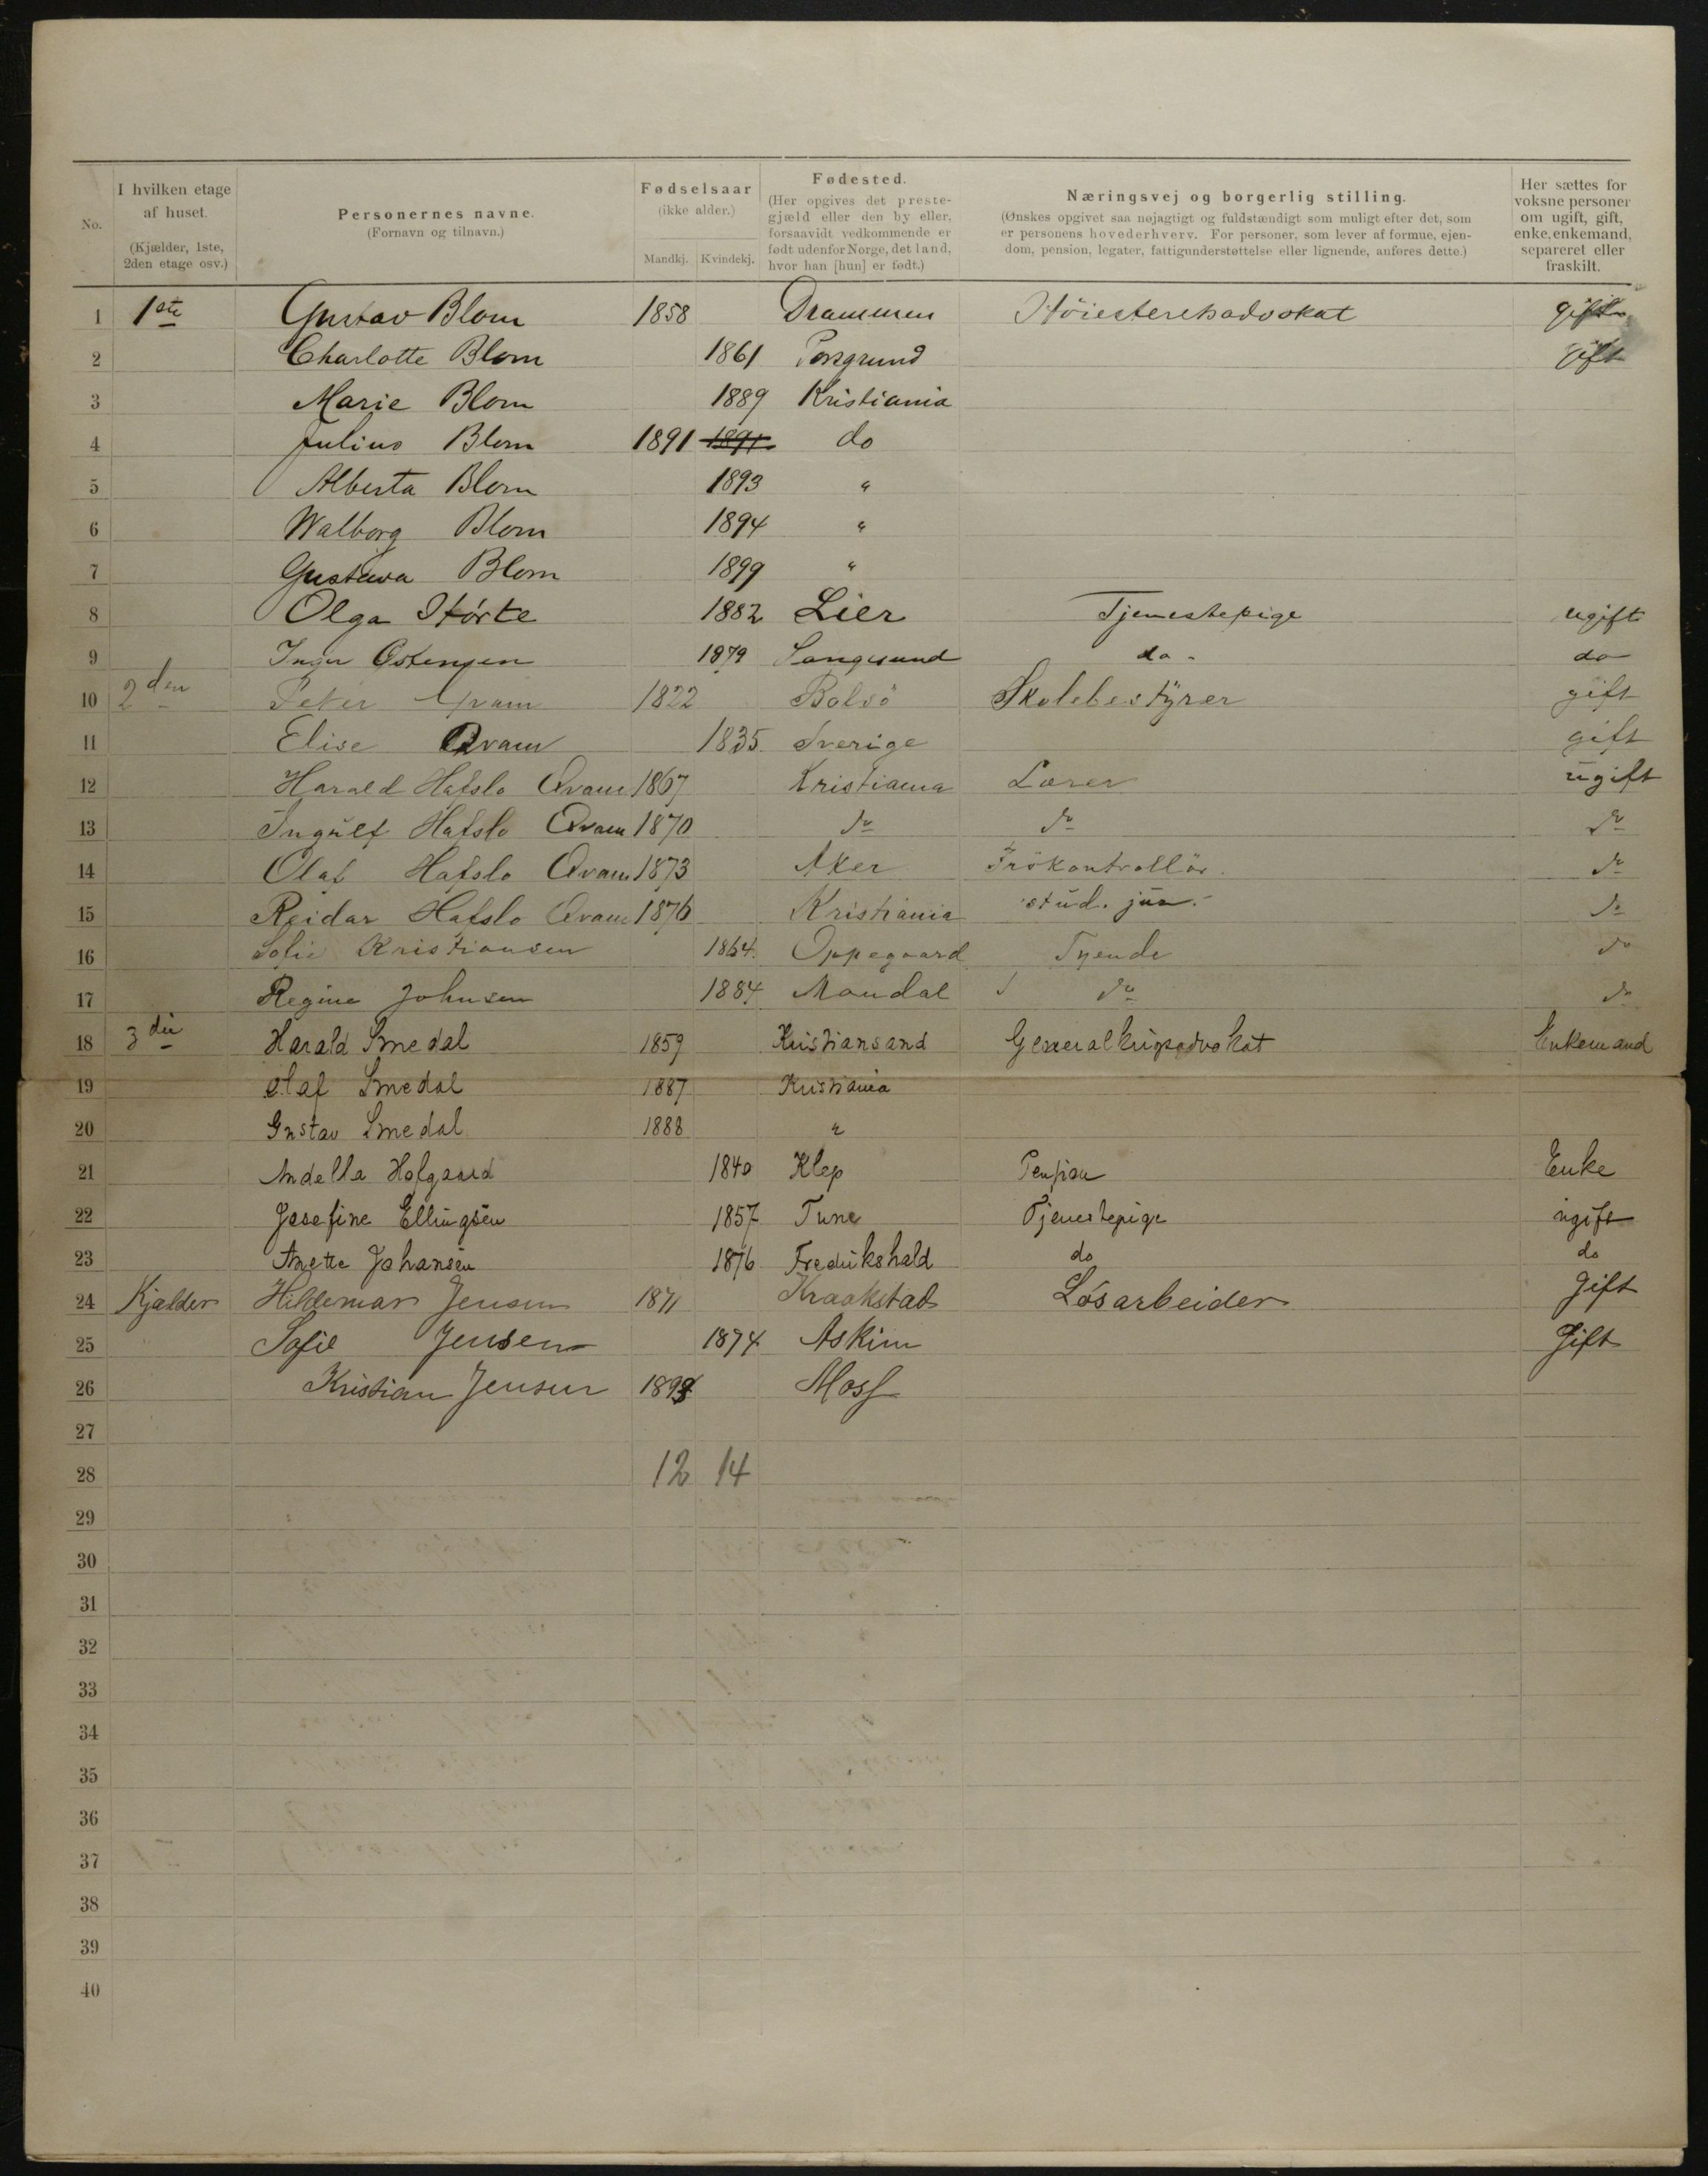 No.
I hvilken etage af huset. (Kjælder, 1ste, 2den etage osv.)
Personernes navne. (Fornavn og tilnavn.)
Fødselsaar (ikke alder.) Mandkj. Kvindekj.
Fødested. (Her opgives det prestegjæld eller den by eller, forsaavidt vedkommende er født udenfor Norge, det land, hvor han [hun] er født.)
Næringsvej og borgerlig stilling. (Ønskes opgivet saa nøjagtigt og fuldstændigt som muligt efter det, som er personens hovederhverv. For personer, som lever af formue, ejendom, pension, legater, fattigunderstøttelse eller lignende, anføres dette.)
Her sættes for voksne personer om ugift, gift, enke, enkemand, separeret eller fraskilt.
1 1ste Gustav Blom 1858 Drammen Höiesteretsadvokat gift
2 Charlotte Blom 1861 Porsgrund gift
3 Marie Blom 1889 Kristiania
4 Julius Blom 1891 1891 do
5 Alberta Blom 1893 "
6 Walborg Blom 1894 "
7 Gustava Blom 1899 "
8 Olga Störte 1882 Lier Tjenestepige ugift
9 Inger Ostensen 1879 Langesund do - do
10 2den Peter Qvam 1822 Bolsö Skolebestyrer gift
11 Elise Qvam 1835 Sverige gift
12 Harald Hafslo Qvam 1867 Kristiania Lærer ugift
13 Ingulf Hafslo Qvam 1870 do do do
14 Olaf Hafslo Qvam 1873 Aker Frökontrollör. do
15 Reidar Hafslo Qvam 1876 Kristiania stud. jur. do
16 Sofie Kristiansen 1864. Oppegaard Tyende do
17 Regine Johnsen 1884 Mandal do do
18 3die Harald Smedal 1859 Kristiansand Generalkrigsadvokat Enkemand
19 Olaf Smedal 1887 Kristiania
20 Gustav Smedal 1888 "
21 Andella Hofgaard 1840 Klep Pension Enke
22 Josefine Ellingsen 1857 Tune Tjenestepige ugift
23 Anette Johansen 1876 Fredrikshald do do
24 Kjælder Hildemar Jensen 1871 Kraakstad Løsarbeider gift
25 Sofie Jensen 1874 Askim Gift
26 Kristian Jensen 1899 Moss
27
28 12 14
29
30
31
32
33
34
35
36
37
38
39
40